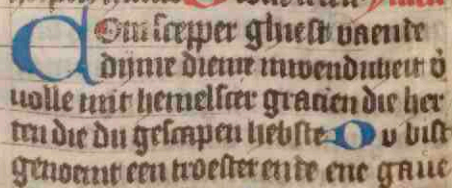 Com scepper ghiest vaende
dijnre dienre inwendicheit v̄
uolle mit hemelscer gracien die her
ten die du gescapen hebste Du bist
genoemt een troester ende ene gaue